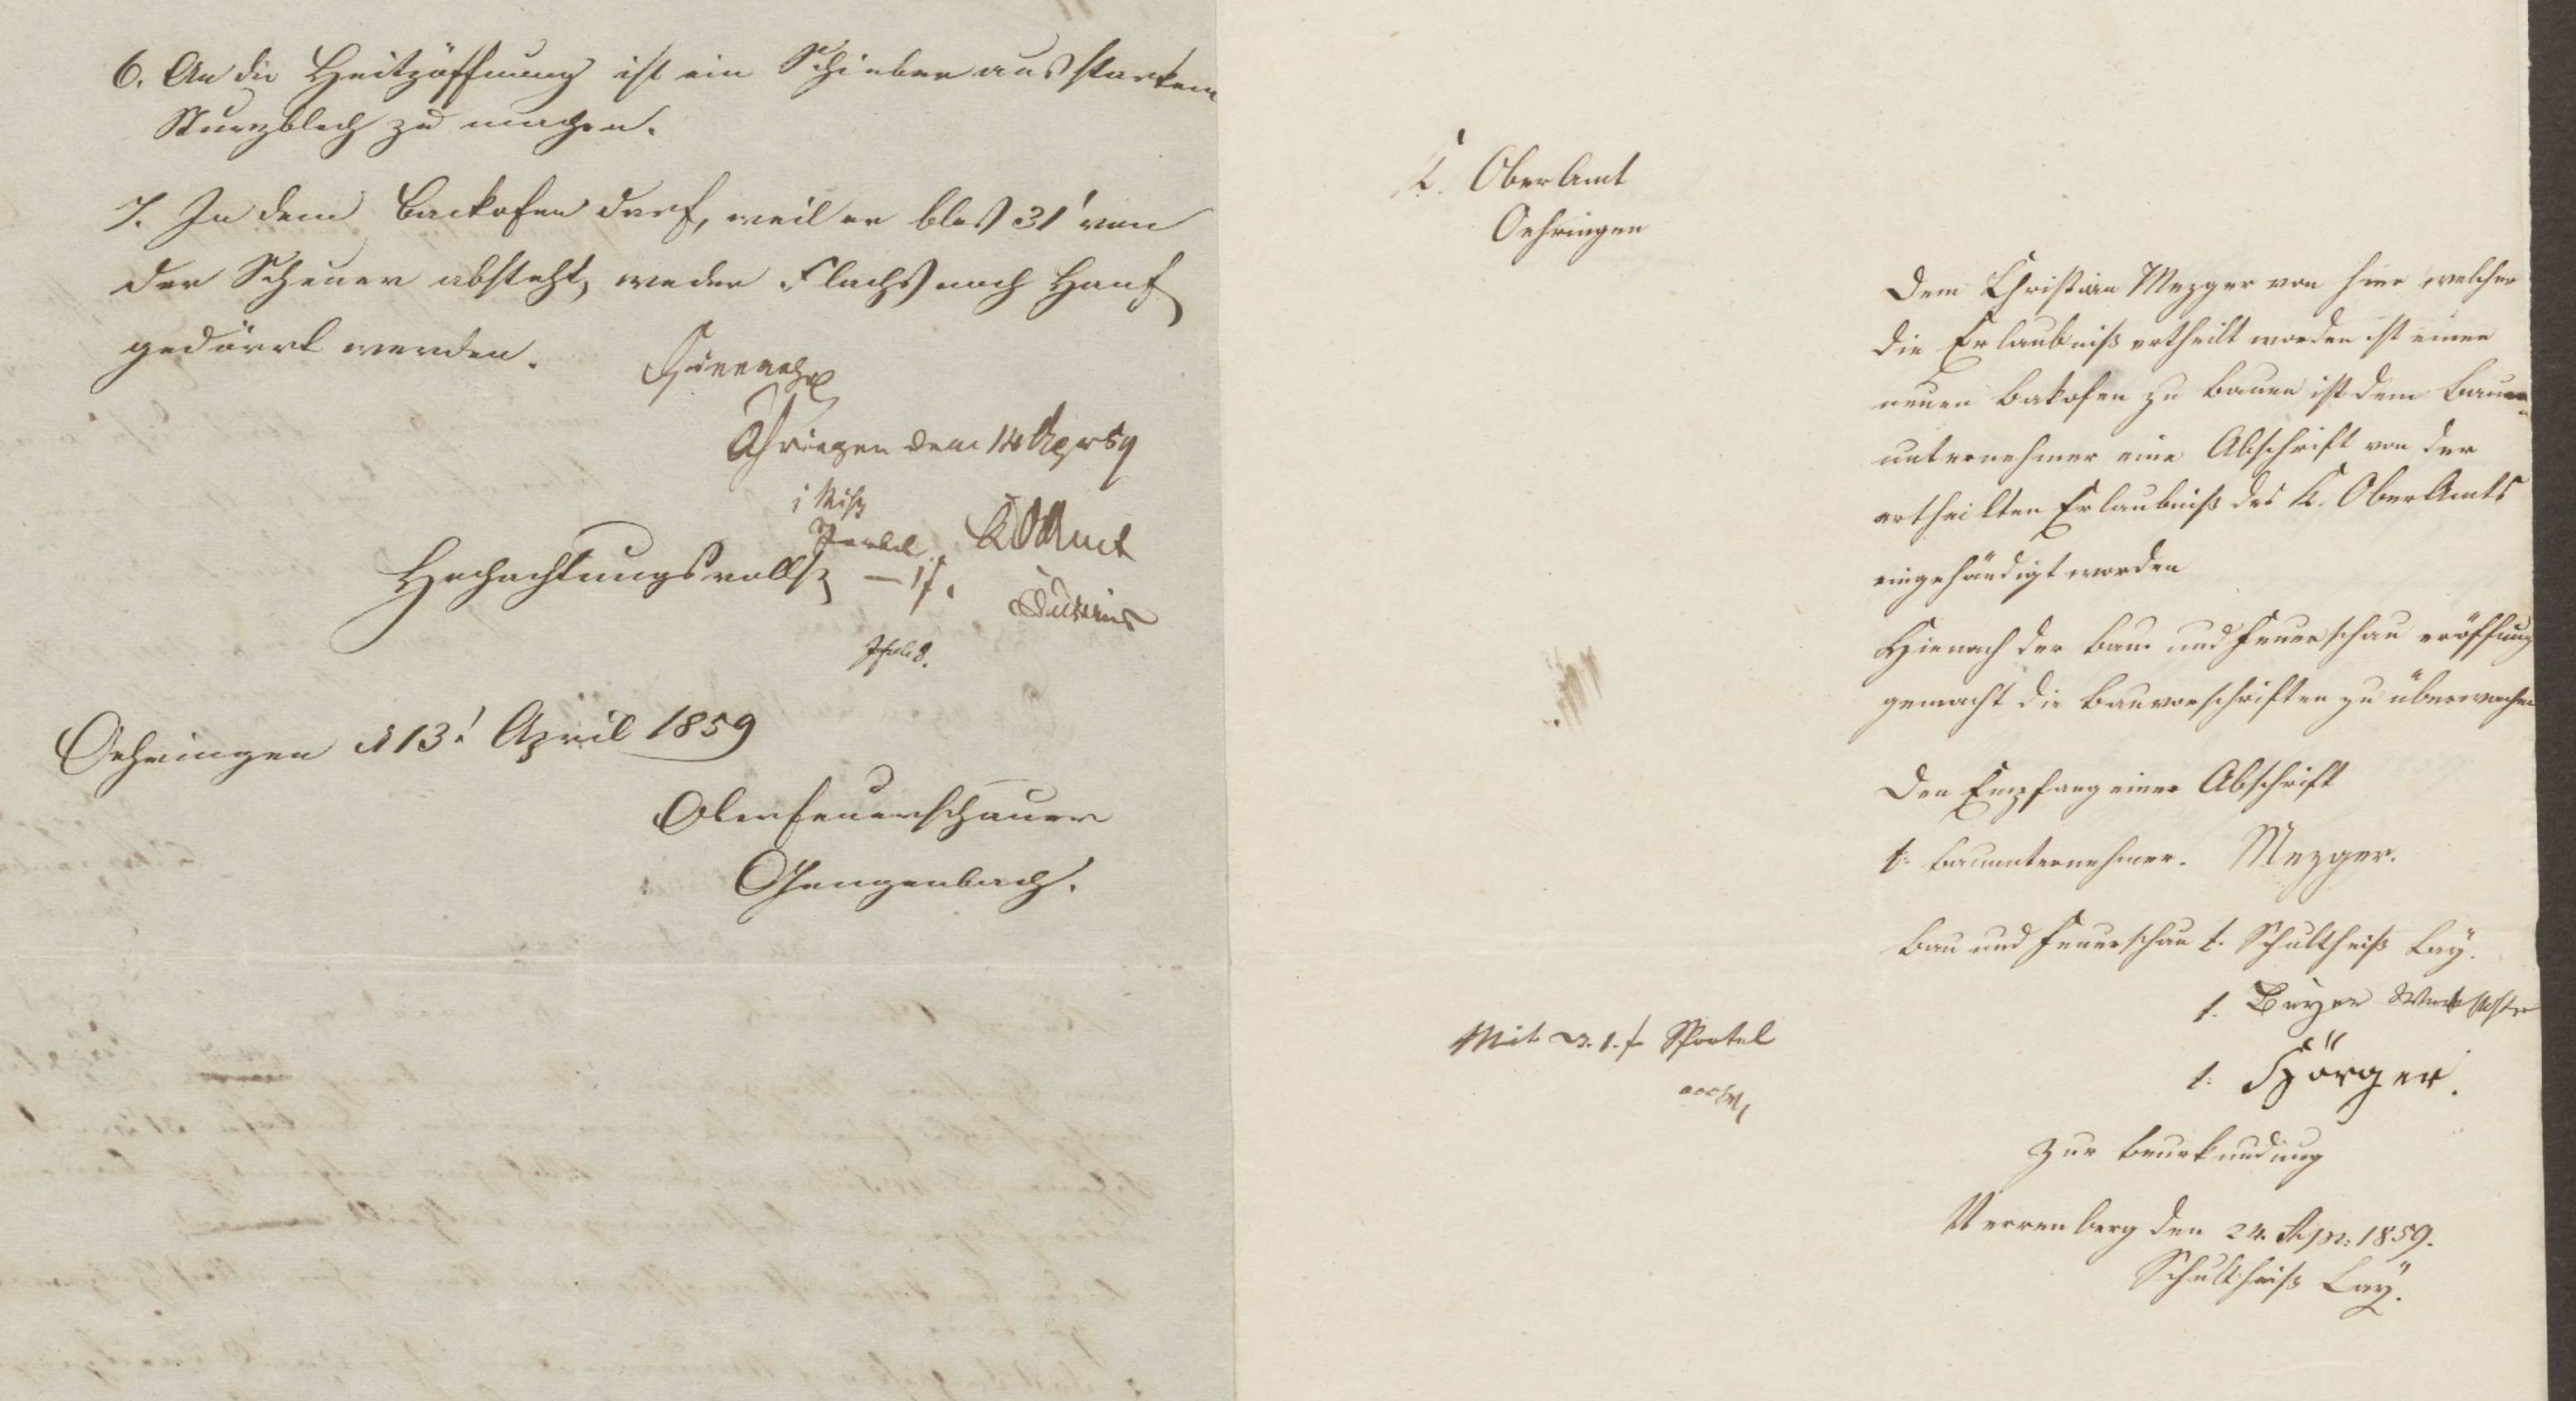 6. An die Heitzöffnung ist ein Schieber aus starkem
Sturzblech zu machen.
7. In dem Backofen darf, weil er blos 31' von
der Scheuer absteht, weder Flachs noch Hanf
gedörrt werden.
Öhringen den 14 Apr 59
Sportel
K OAmt
Hochachtungsvollst
— 1 f.
Oehringen d 13t April 1859
Oberfeuerschauer
Gengenbach.
K. OberAmt
Oehringen
Dem Christian Mezger von hier welcher
die Erlaubniß ertheilt worden ist einen
neuen Bakofen zu bauen ist dem Bau-
unternehmer eine Abschrift von der
ertheilten Erlaubniß des K. OberAmts
eingehändigt worden
Hienach der Bau und Feuerschau eröffnung
gemacht die Bauvorschriften zu überwachen
Den Empfang einer Abschrift
t. Bauunternehmer. Mezger.
Bau und Feuerschau t. Schultheiß Lay.
t. Beyer
t. Hörger.
Mit 1. f Sportel
Zur Beurkundung
Verrenberg den 24. Apr: 1859.
Schultheiß Lay.